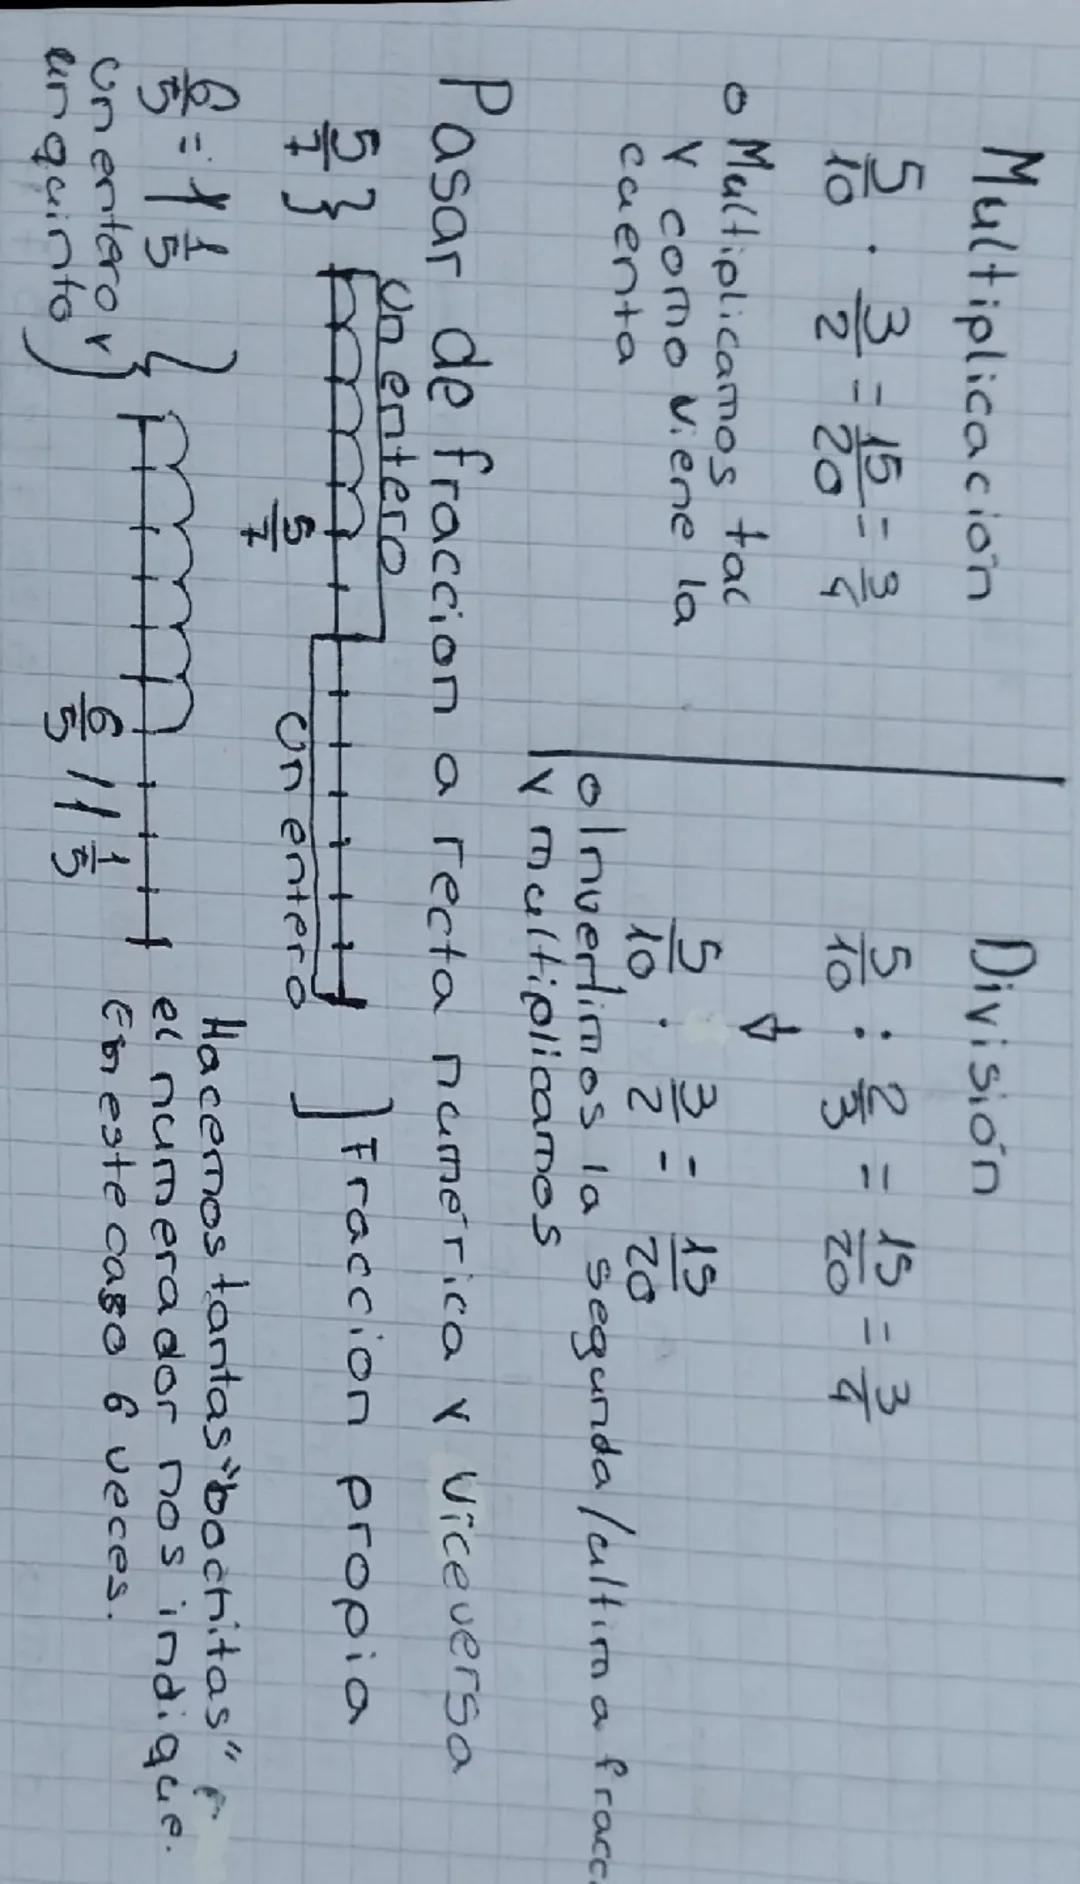 Multiplicación
5/10 . 3/2 = 15/20 = 3/4
o Multiplicamos tac
y como viene la
cuenta
División
5/10 : 2/3 = 15/20 = 3/4
5/10 . 3/2 = 15/20
o Invertimos la segunda/ultima fracc.
y multiplicamos
Pasar de fraccion a recta numérica y viceversa
5/7 }
Un entero
5/7
Un entero
] Fraccion propia
6/5 = 1 1/5
Un entero y
un quinto
6/5 // 1 1/5
Hacemos tantas "bochitas"
el numerador nos indique.
En este caso 6 veces.